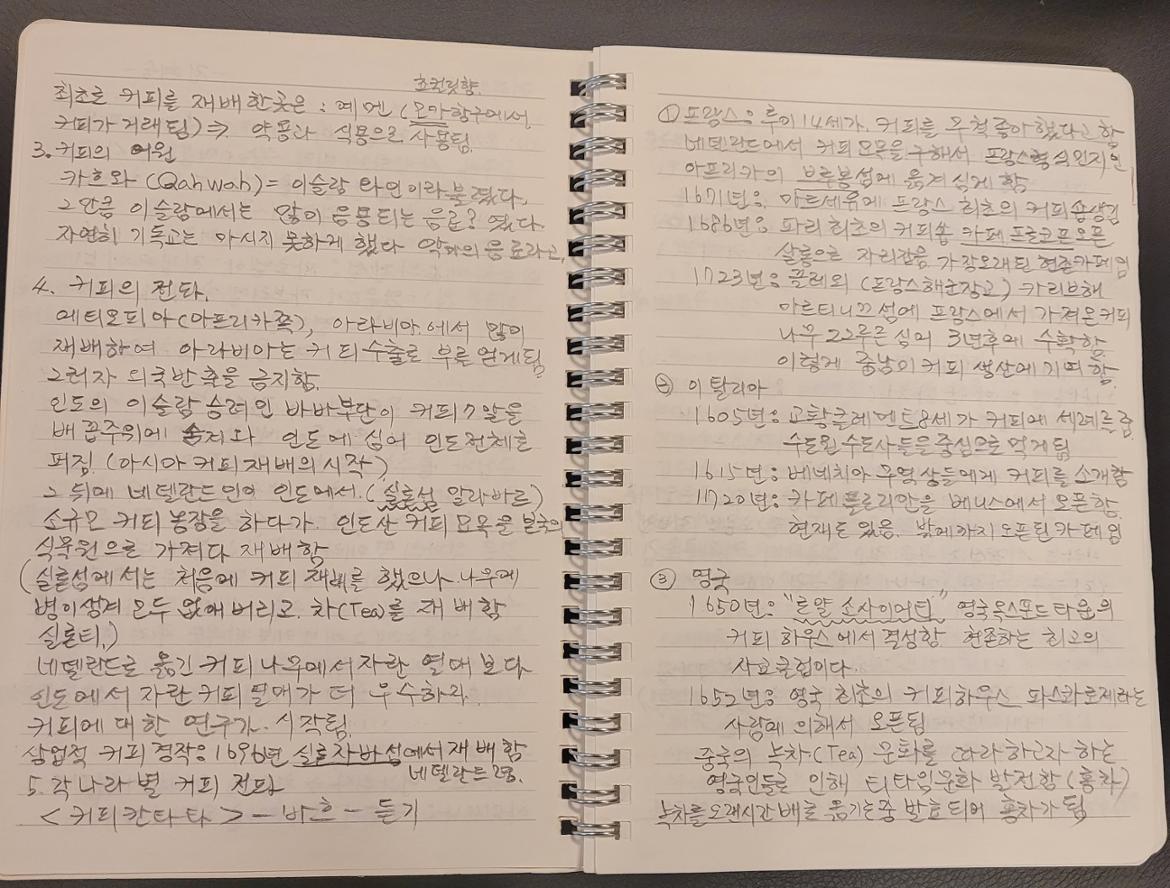 초컬릿향.
최초로 커피를 재배한곳은 : 예멘 (모카항구에서,
커피가 거래됨) ⇒ 약용과 식용으로 사용됨.
3. 커피의 어원
카흐와 (Qahwah) = 이슬람 와인이라 불렸다.
그만큼 이슬람에서는 많이 음용되는 음료? 였다.
자연히 기독교는 마시지 못하게 했다 악마의 음료라고,
4. 커피의 전파.
에티오피아(아프리카쪽), 아라비아.에서 많이
재배하여 아라비아는 커피수출로 부를 얻게됨
그러자 외국반출을 금지함.
인도의 이슬람 승려인 바바부단이 커피7알을
배꼽주위에 숨겨와 인도에 심어 인도전체로
퍼짐. (아시아 커피재배의 시작)
그 뒤에 네델란드인이 인도에서. (실론섬 말라바르)
소규모 커피 농장을 하다가. 인도산 커피 모목을 본국의
식물원으로 가져다 재배함
(실론섬에서는 처음에 커피 재배를 했으나 나무에
병이생겨 모두 없애 버리고. 차(Tea)를 재배함
실론티,)
네델란드로 옮긴 커피나무에서 자란 열매 보다
인도에서 자란 커피 열매가 더 우수하여
커피에 대한 연구가. 시작됨.
상업적 커피 경작은 1696년 실론자바섬에서 재배함
네델란드
5. 각나라별 커피 전파
<커피칸타타> - 바흐 - 듣기
① 프랑스 : 루이14세가. 커피를 무척 좋아했다고 함
네델란드에서 커피모목을 구해서 프랑스형식민지인
아프리카의 브루봉섬에 옮겨 심게 함
1671년 : 마르세유에 프랑스 최초의 커피숍생김
1686년 : 파리 최초의 커피숍 카페 프로코프오픈
살롱으로 자리잡음 가장오래된 현존카페임
1723년 : 끌레외 (프랑스해군장교) 카리브해
마르티니끄섬에 프랑스에서 가져온커피
나무 22루는 심어 3년후에 수확함.
이렇게 중남미 커피 생산에 기여함.
② 이탈리아
1605년 : 교황클레멘트8세가 커피에 세례를 줌
수도원 수도사들을 중심으로 먹게됨
1615년 : 베네치아 무역상들에게 커피를 소개함
1720년 : 카페 플로리안을 베니스에서 오픈함.
현재도 있음. 밖에까지 오픈된 카페임
③ 영국
1650년 : "로얄 소사이어티" 영국옥스포드타운의
커피 하우스에서 결성함. 현존하는 최고의
사교클럽이다.
1652년 : 영국 최초의 커피하우스 파스콰로제라는
사람에 의해서 오픈됨
중국의 녹차(Tea) 문화를 따라하고자 하는
영국인들로 인해 티타임문화 발전함 (홍차)
녹차를오랜시간 배로 옮기는중 발효되어 홍차가 됨